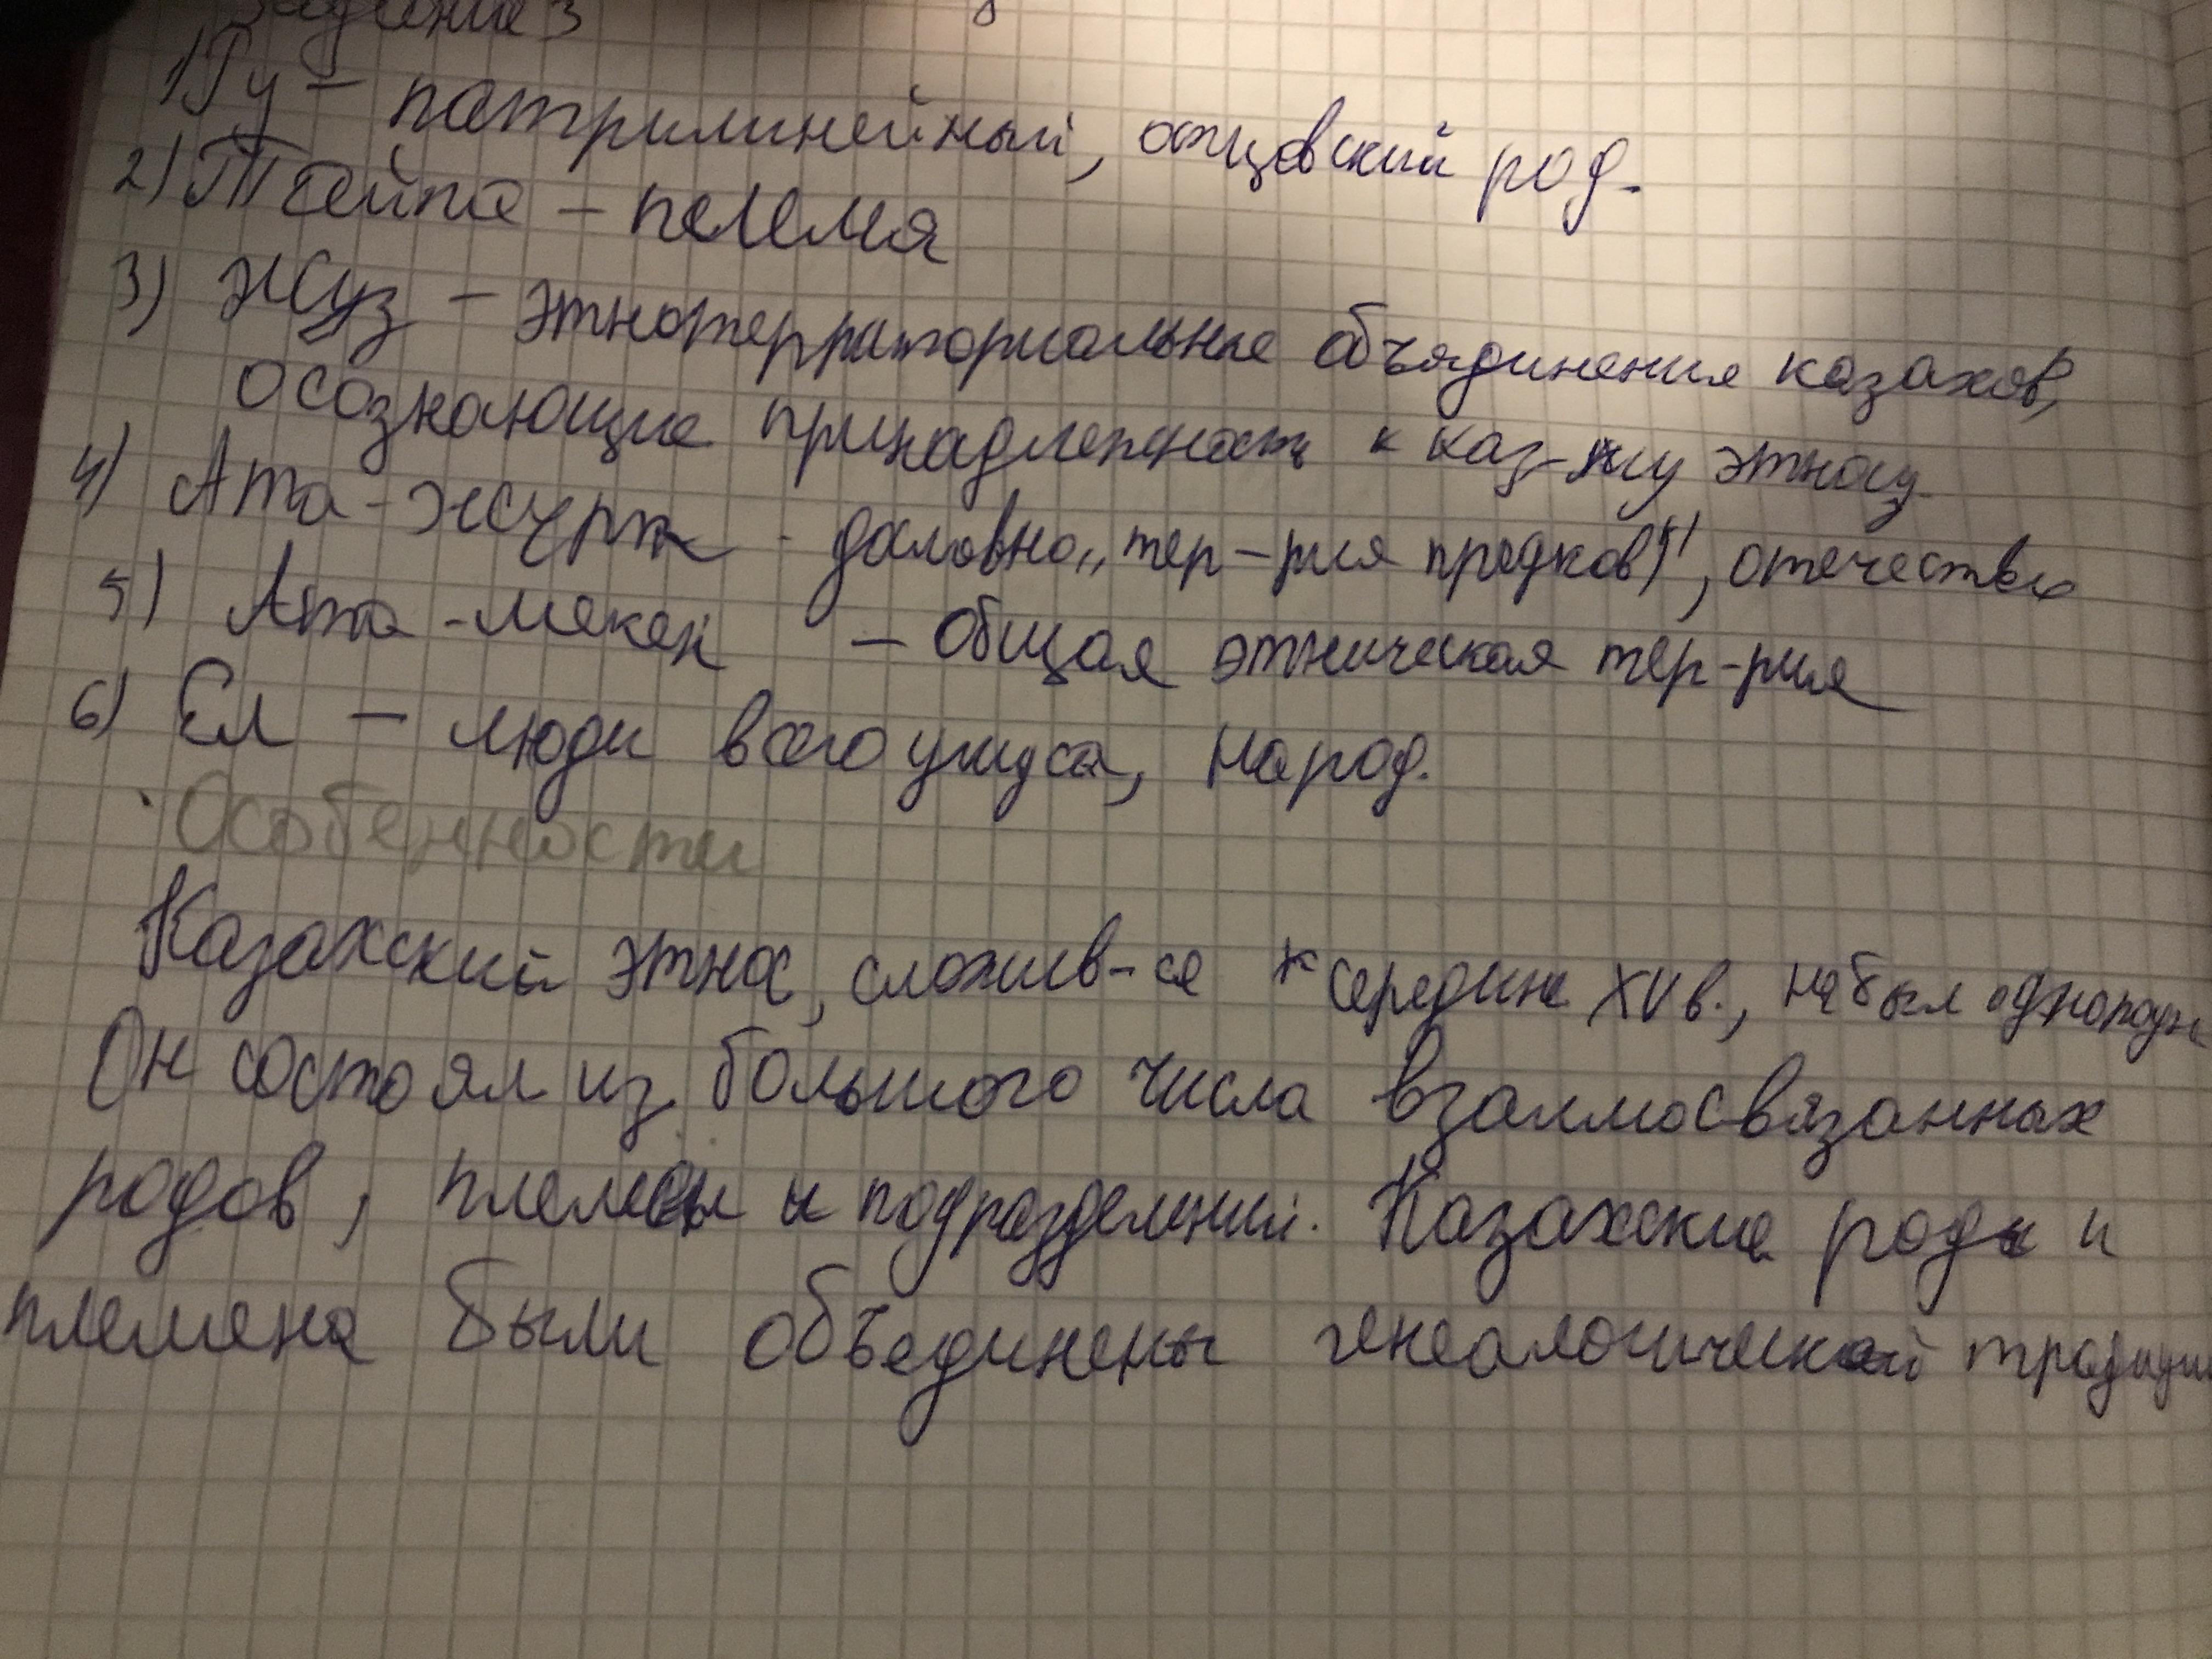 Задание 3
1) Ру – патрилинейный, отцовский род.
2) Тайпа – пелемя
3) Жуз – этнотерриториальные объядинения казахов,
осознающие принадлежность к каз-му этносу
4) Ата-журт - дословно „тер-рия предков", отечество
5) Ата-мекен – общая этническая тер-рия
6) Ел – люди всего улуса, народ.
Особенности
Казахский этнос, сложив-ся к середине XV в., не был однородн
Он состоял из большого числа взаимосвязанных
родов, племен и подразделений. Казахские роды и
племена были объединены генеалогической традици